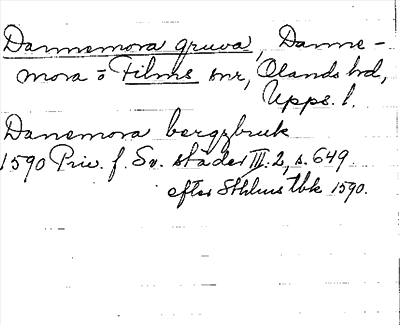 Dannemora gruva, Danne-
mora o Films snr, Olands hd,
Upps. l.
Danemora bergzbruk
1590 Priv. f. Sv. städer III:2, s. 649.
efter Sthlms tbk 1590.